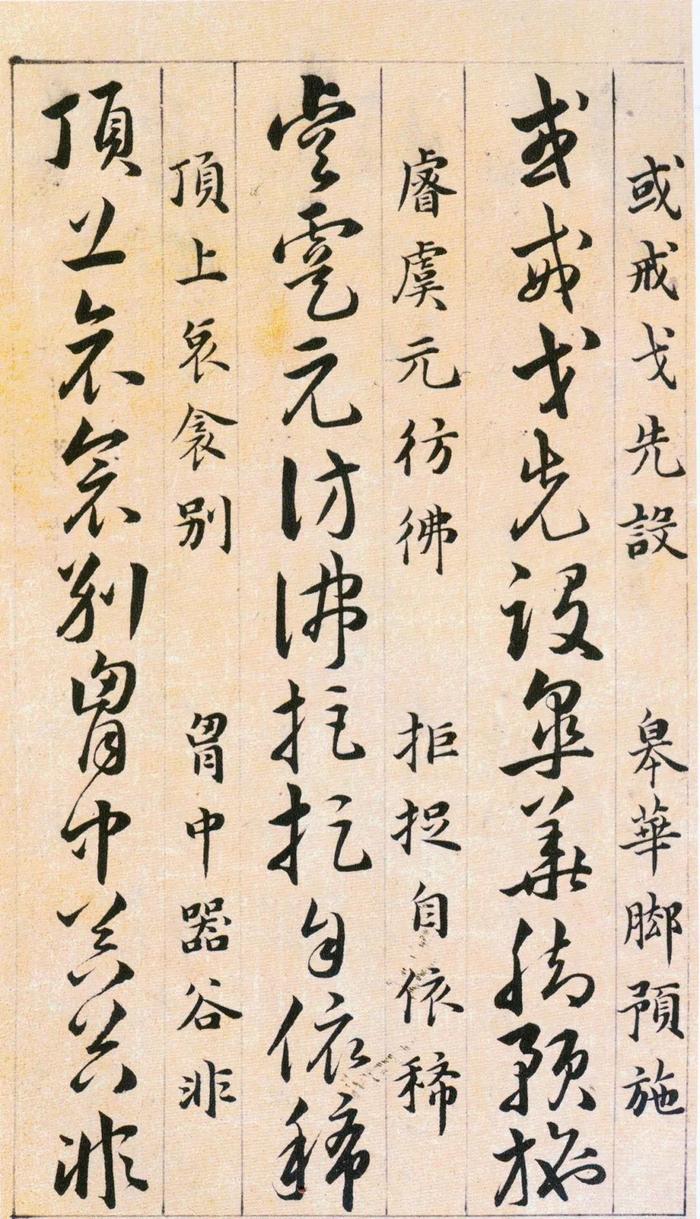 或戒戈先設 皋華脚預施
或戒戈先設皋華脚預施
睿虞元彷彿 拒捉自依稀
睿虞元彷彿拒捉自依稀
頂上哀衾别 胷中器谷非
頂上哀衾别胷中器谷非